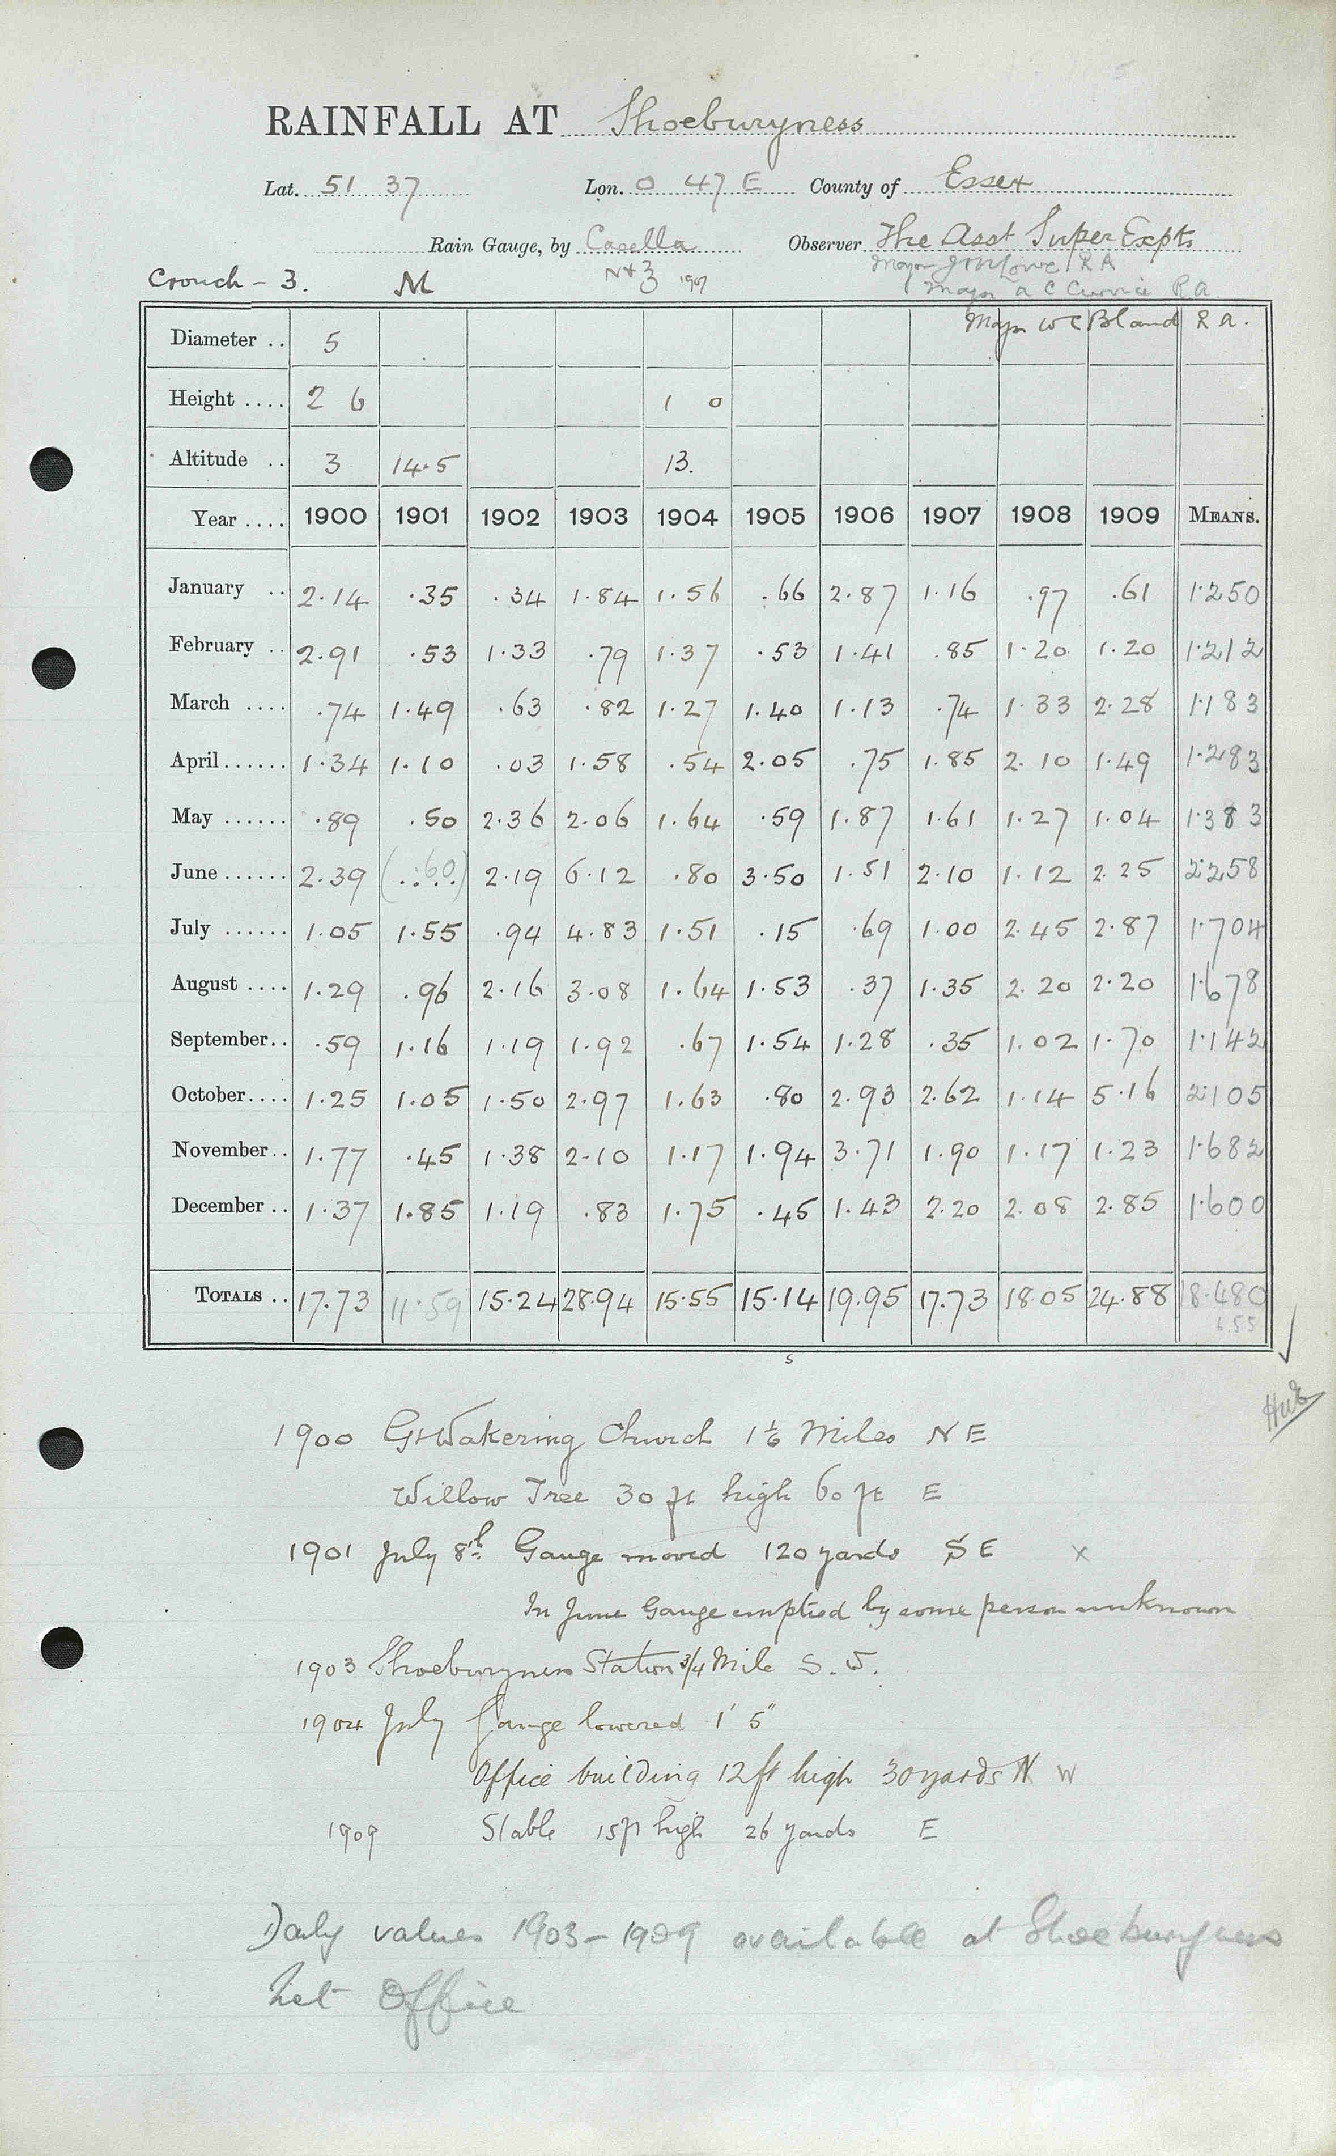 RAINFALL AT Shoeburyness
Lat. 51 37 Lon. 0 47 E County of Essex
Rain Gauge, by Casella Observer The Asst Super Expts
Major RA
Crouch - 3. M 1907 Major A C Currie RA
Major W C Bland R A.
Diameter .. 5
Height .... 2 6 1 0
Altitude .. 3 14.5 13.
Year .... 1900 1901 1902 1903 1904 1905 1906 1907 1908 1909 MEANS.
January .. 2.14 .35 .34 1.84 1.56 .66 2.87 1.16 .97 .61 1.250
February .. 2.91 .53 1.33 .79 1.37 .53 1.41 .85 1.20 1.20 1.212
March .... .74 1.49 .63 .82 1.27 1.40 1.13 .74 1.33 2.28 1.183
April...... 1.34 1.10 .03 1.58 .54 2.05 .75 1.85 2.10 1.49 1.283
May ...... .89 .50 2.36 2.06 1.64 .59 1.87 1.61 1.27 1.04 1.383
June ...... 2.39 (.60) 2.19 6.12 .80 3.50 1.51 2.10 1.12 2.25 2.258
July ...... 1.05 1.55 .94 4.83 1.51 .15 .69 1.00 2.45 2.87 1.704
August .... 1.29 .96 2.16 3.08 1.64 1.53 .37 1.35 2.20 2.20 1.678
September.. .59 1.16 1.19 1.92 .67 1.54 1.28 .35 1.02 1.70 1.142
October.... 1.25 1.05 1.50 2.97 1.63 .80 2.93 2.62 1.14 5.16 2.105
November.. 1.77 .45 1.38 2.10 1.17 1.94 3.71 1.90 1.17 1.23 1.682
December .. 1.37 1.85 1.19 .83 1.75 .45 1.43 2.20 2.08 2.85 1.600
TOTALS .. 17.73 11.59 15.24 28.94 15.55 15.14 19.95 17.73 18.05 24.88 18.480
655
s
1900 Gt Wakering Church 1 1/6 Miles N E
Willow Tree 30 ft high 60 ft E
1901 July 8th Gauge moved 120 yards S E x
In June Gauge emptied by some person unknown
1903 Shoeburyness Station 3/4 Mile S. W.
1904 July Gauge lowered 1' 5"
Office building 12 ft high 30 yards N W
1909 Stable 15 ft high 26 yards E
Daily values 1903 - 1909 available at Shoeburyness
Met Office